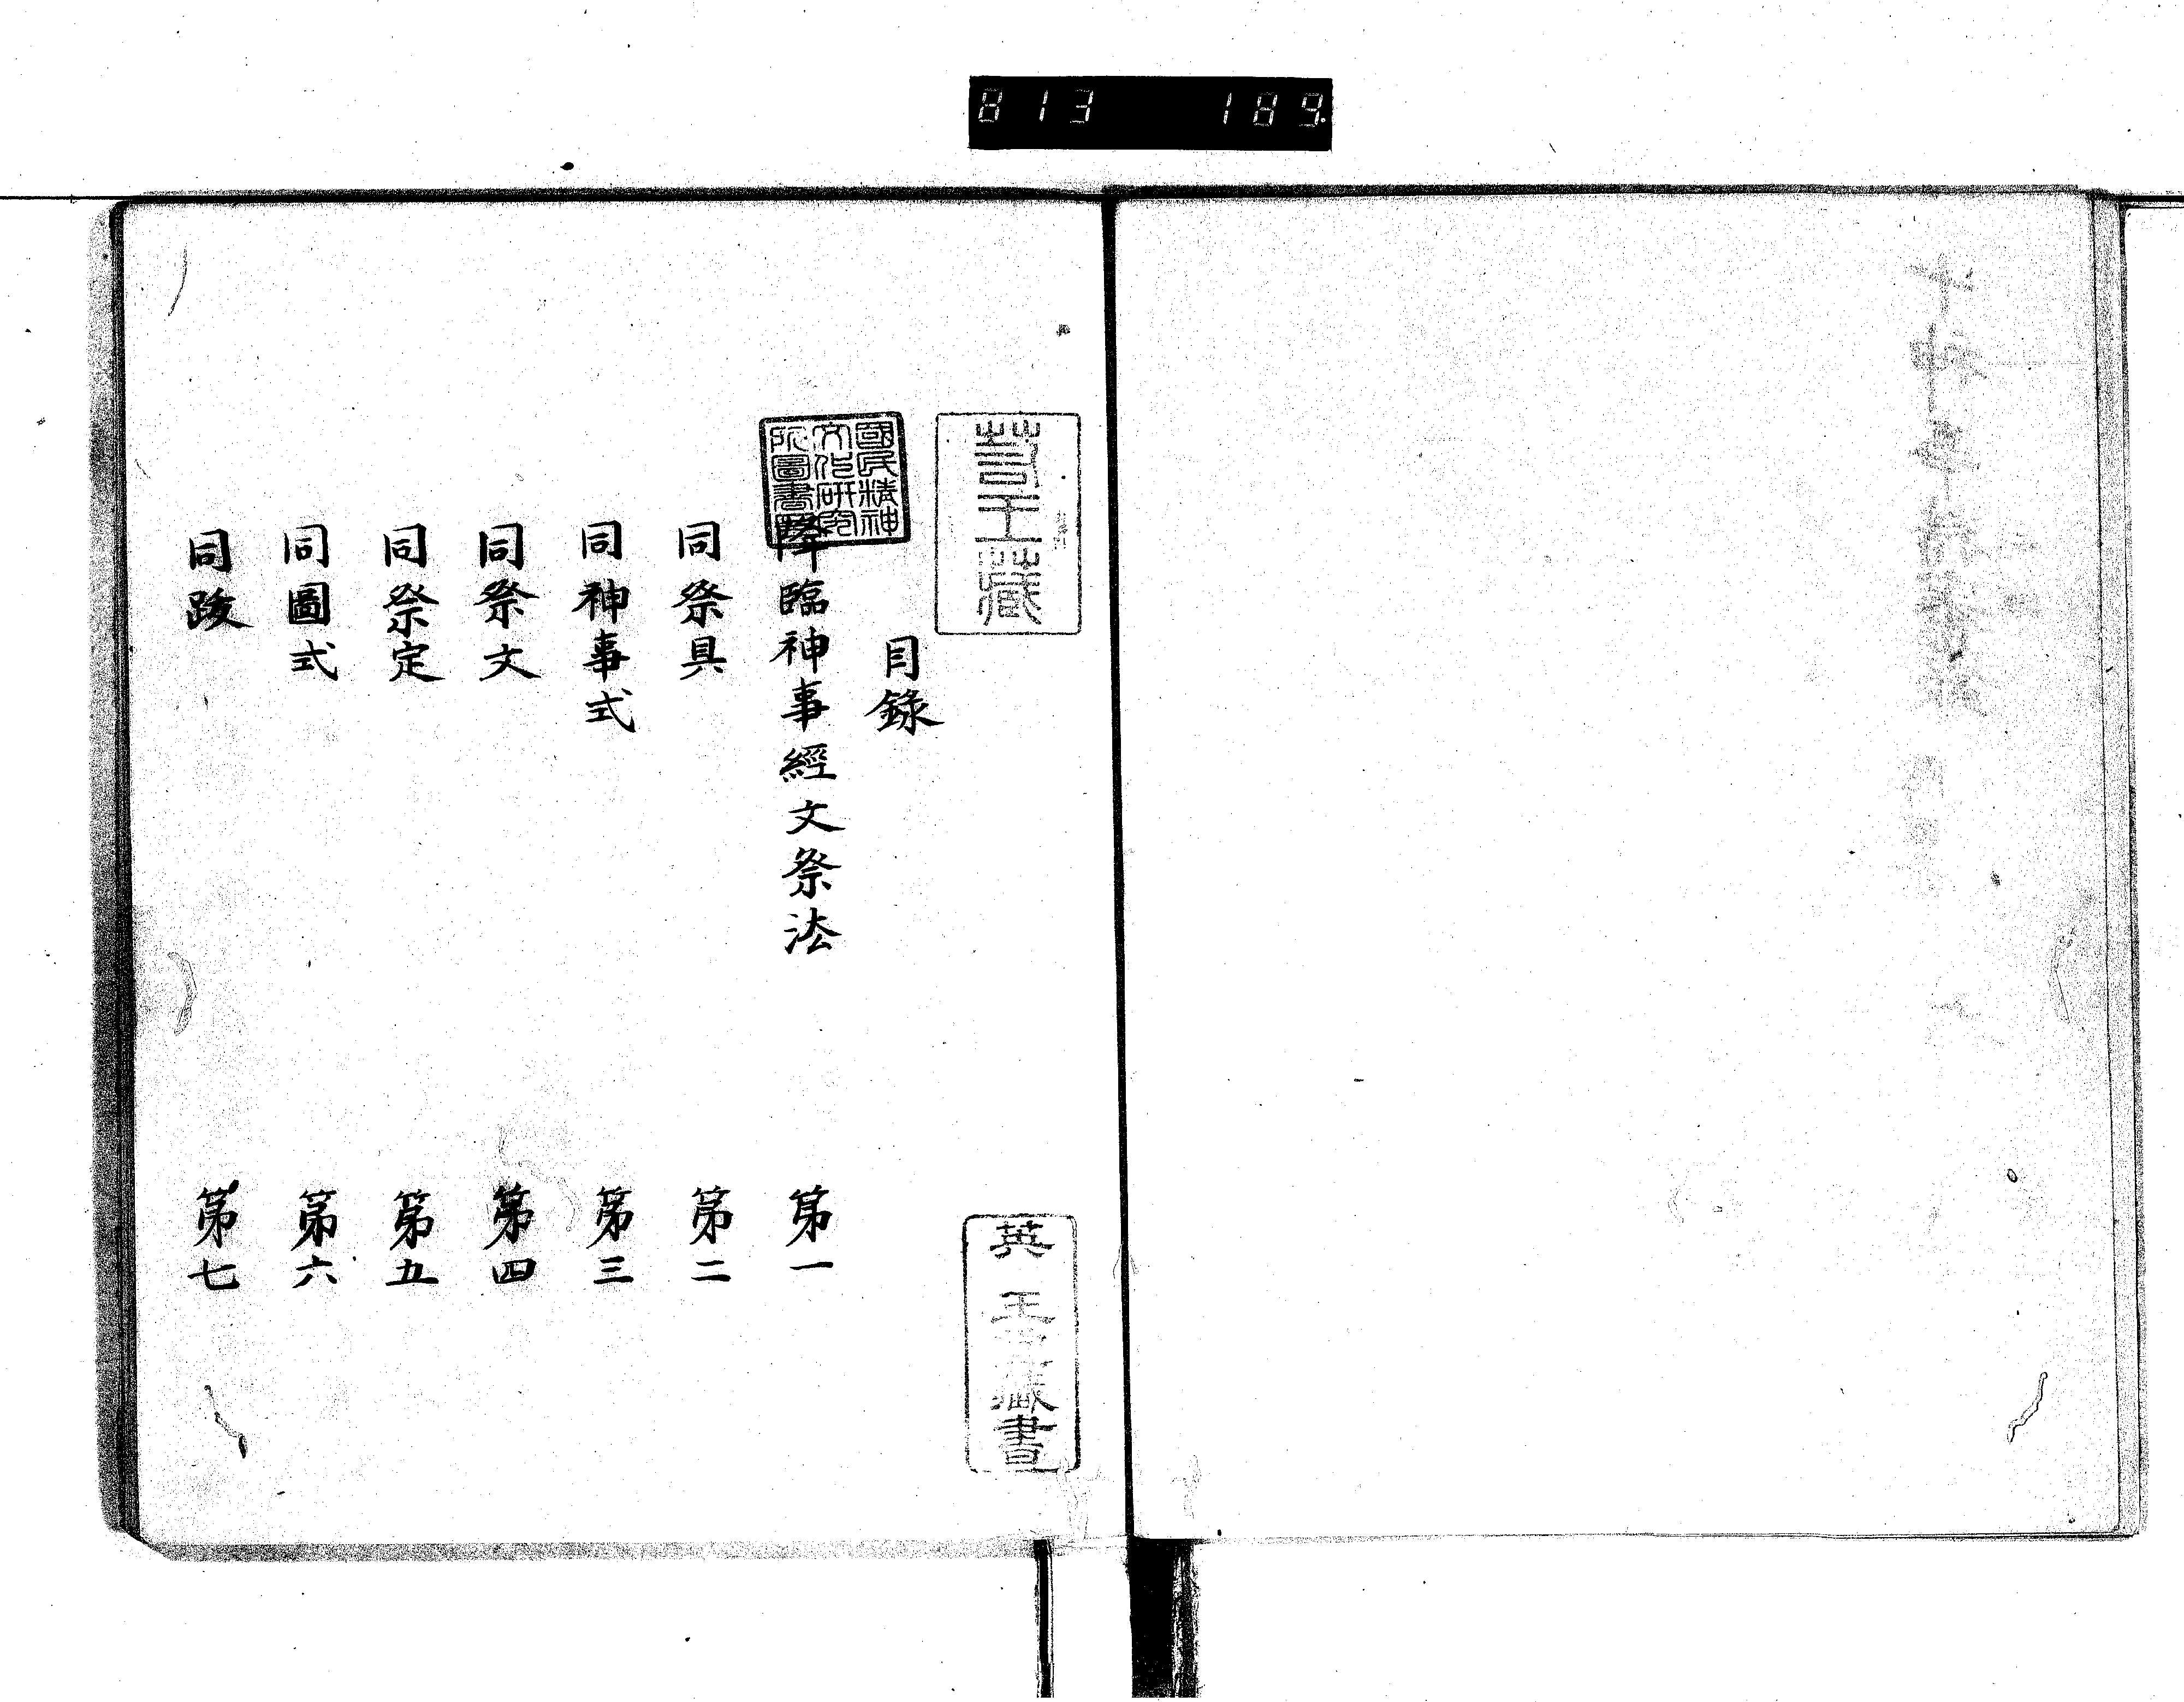 813 189.
目錄
降臨神事經文祭法 第一
同祭具 第二
同神事式 第三
同祭文 第四
同祭定 第五
同圖式 第六
同跋 第七
國民精神
文化研究
所圖書
王藏
英王 藏書